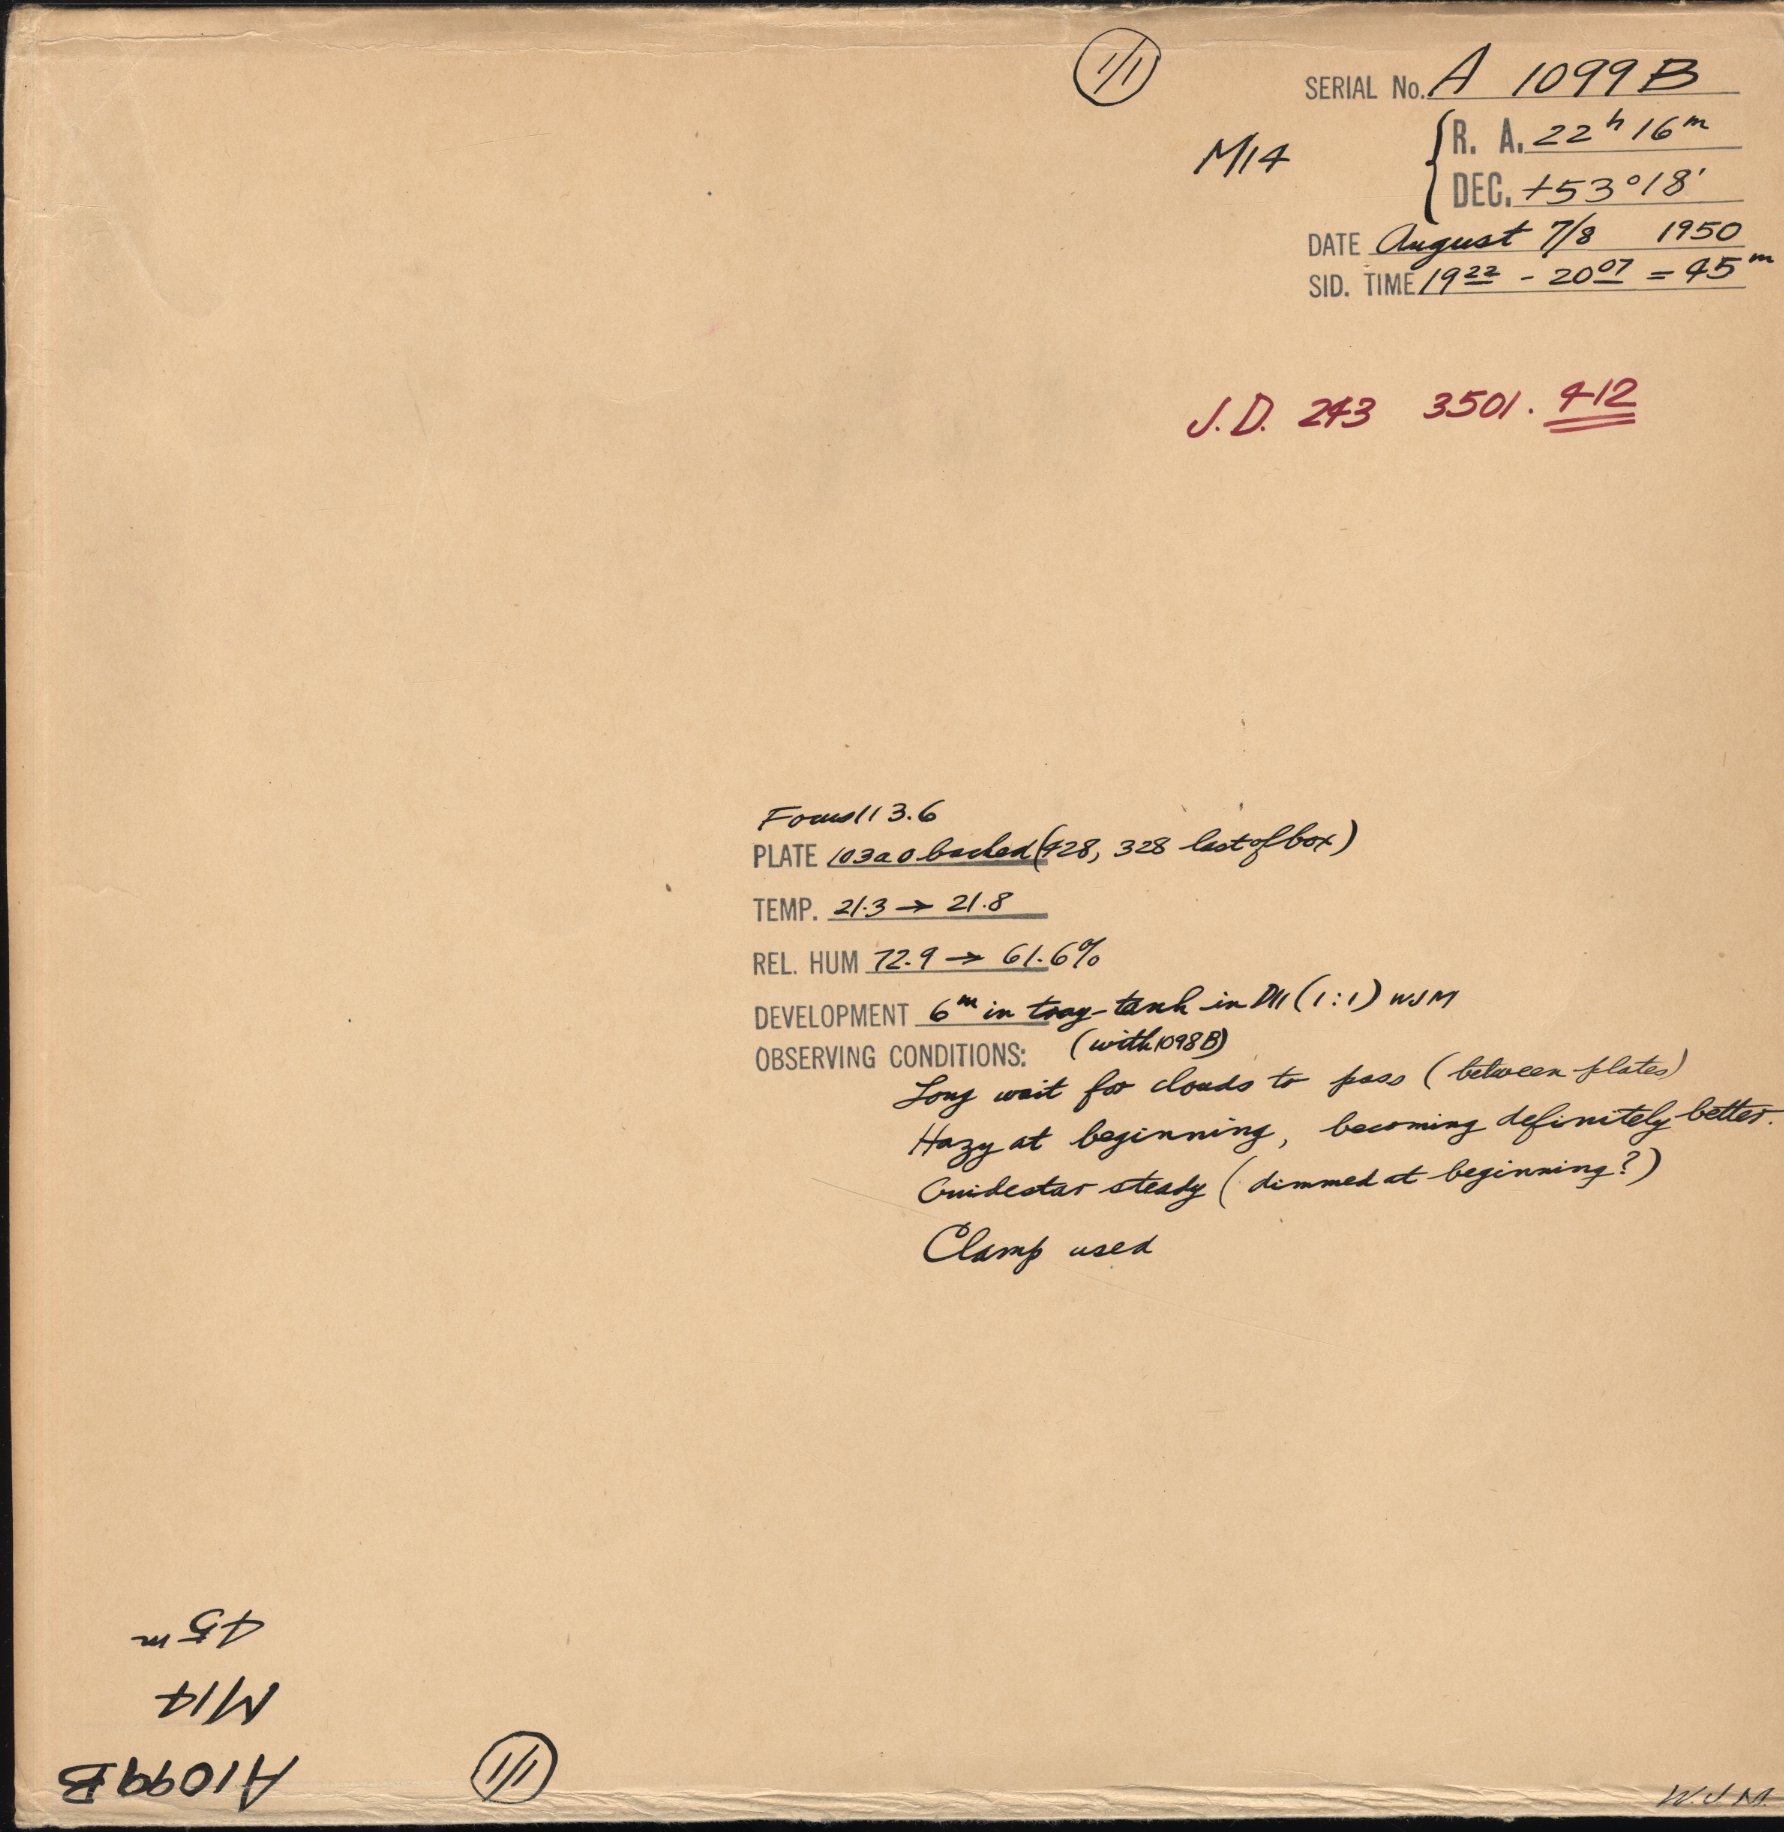 1/1
SERIAL No. A 1099 B
M14
R. A. 22ʰ 16ᵐ
DEC. +53°18'
DATE August 7/8 1950
SID. TIME 19 22 - 20 07 = 45ᵐ
J.D. 243 3501.412
Focus 113.6
PLATE 103a0 backed (428, 328 last of box)
TEMP. 21.3 → 21.8
REL. HUM 72.9 → 61.6%
DEVELOPMENT 6ᵐ in tray-tank in D11 (1:1) WJM
(with 1098B)
OBSERVING CONDITIONS:
Long wait for clouds to pass (between plates)
Hazy at beginning, becoming definitely better.
Guidestar steady (dimmed at beginning?)
Clamp used
45ᵐ
M14
A1099B
1/1
W.J.M.